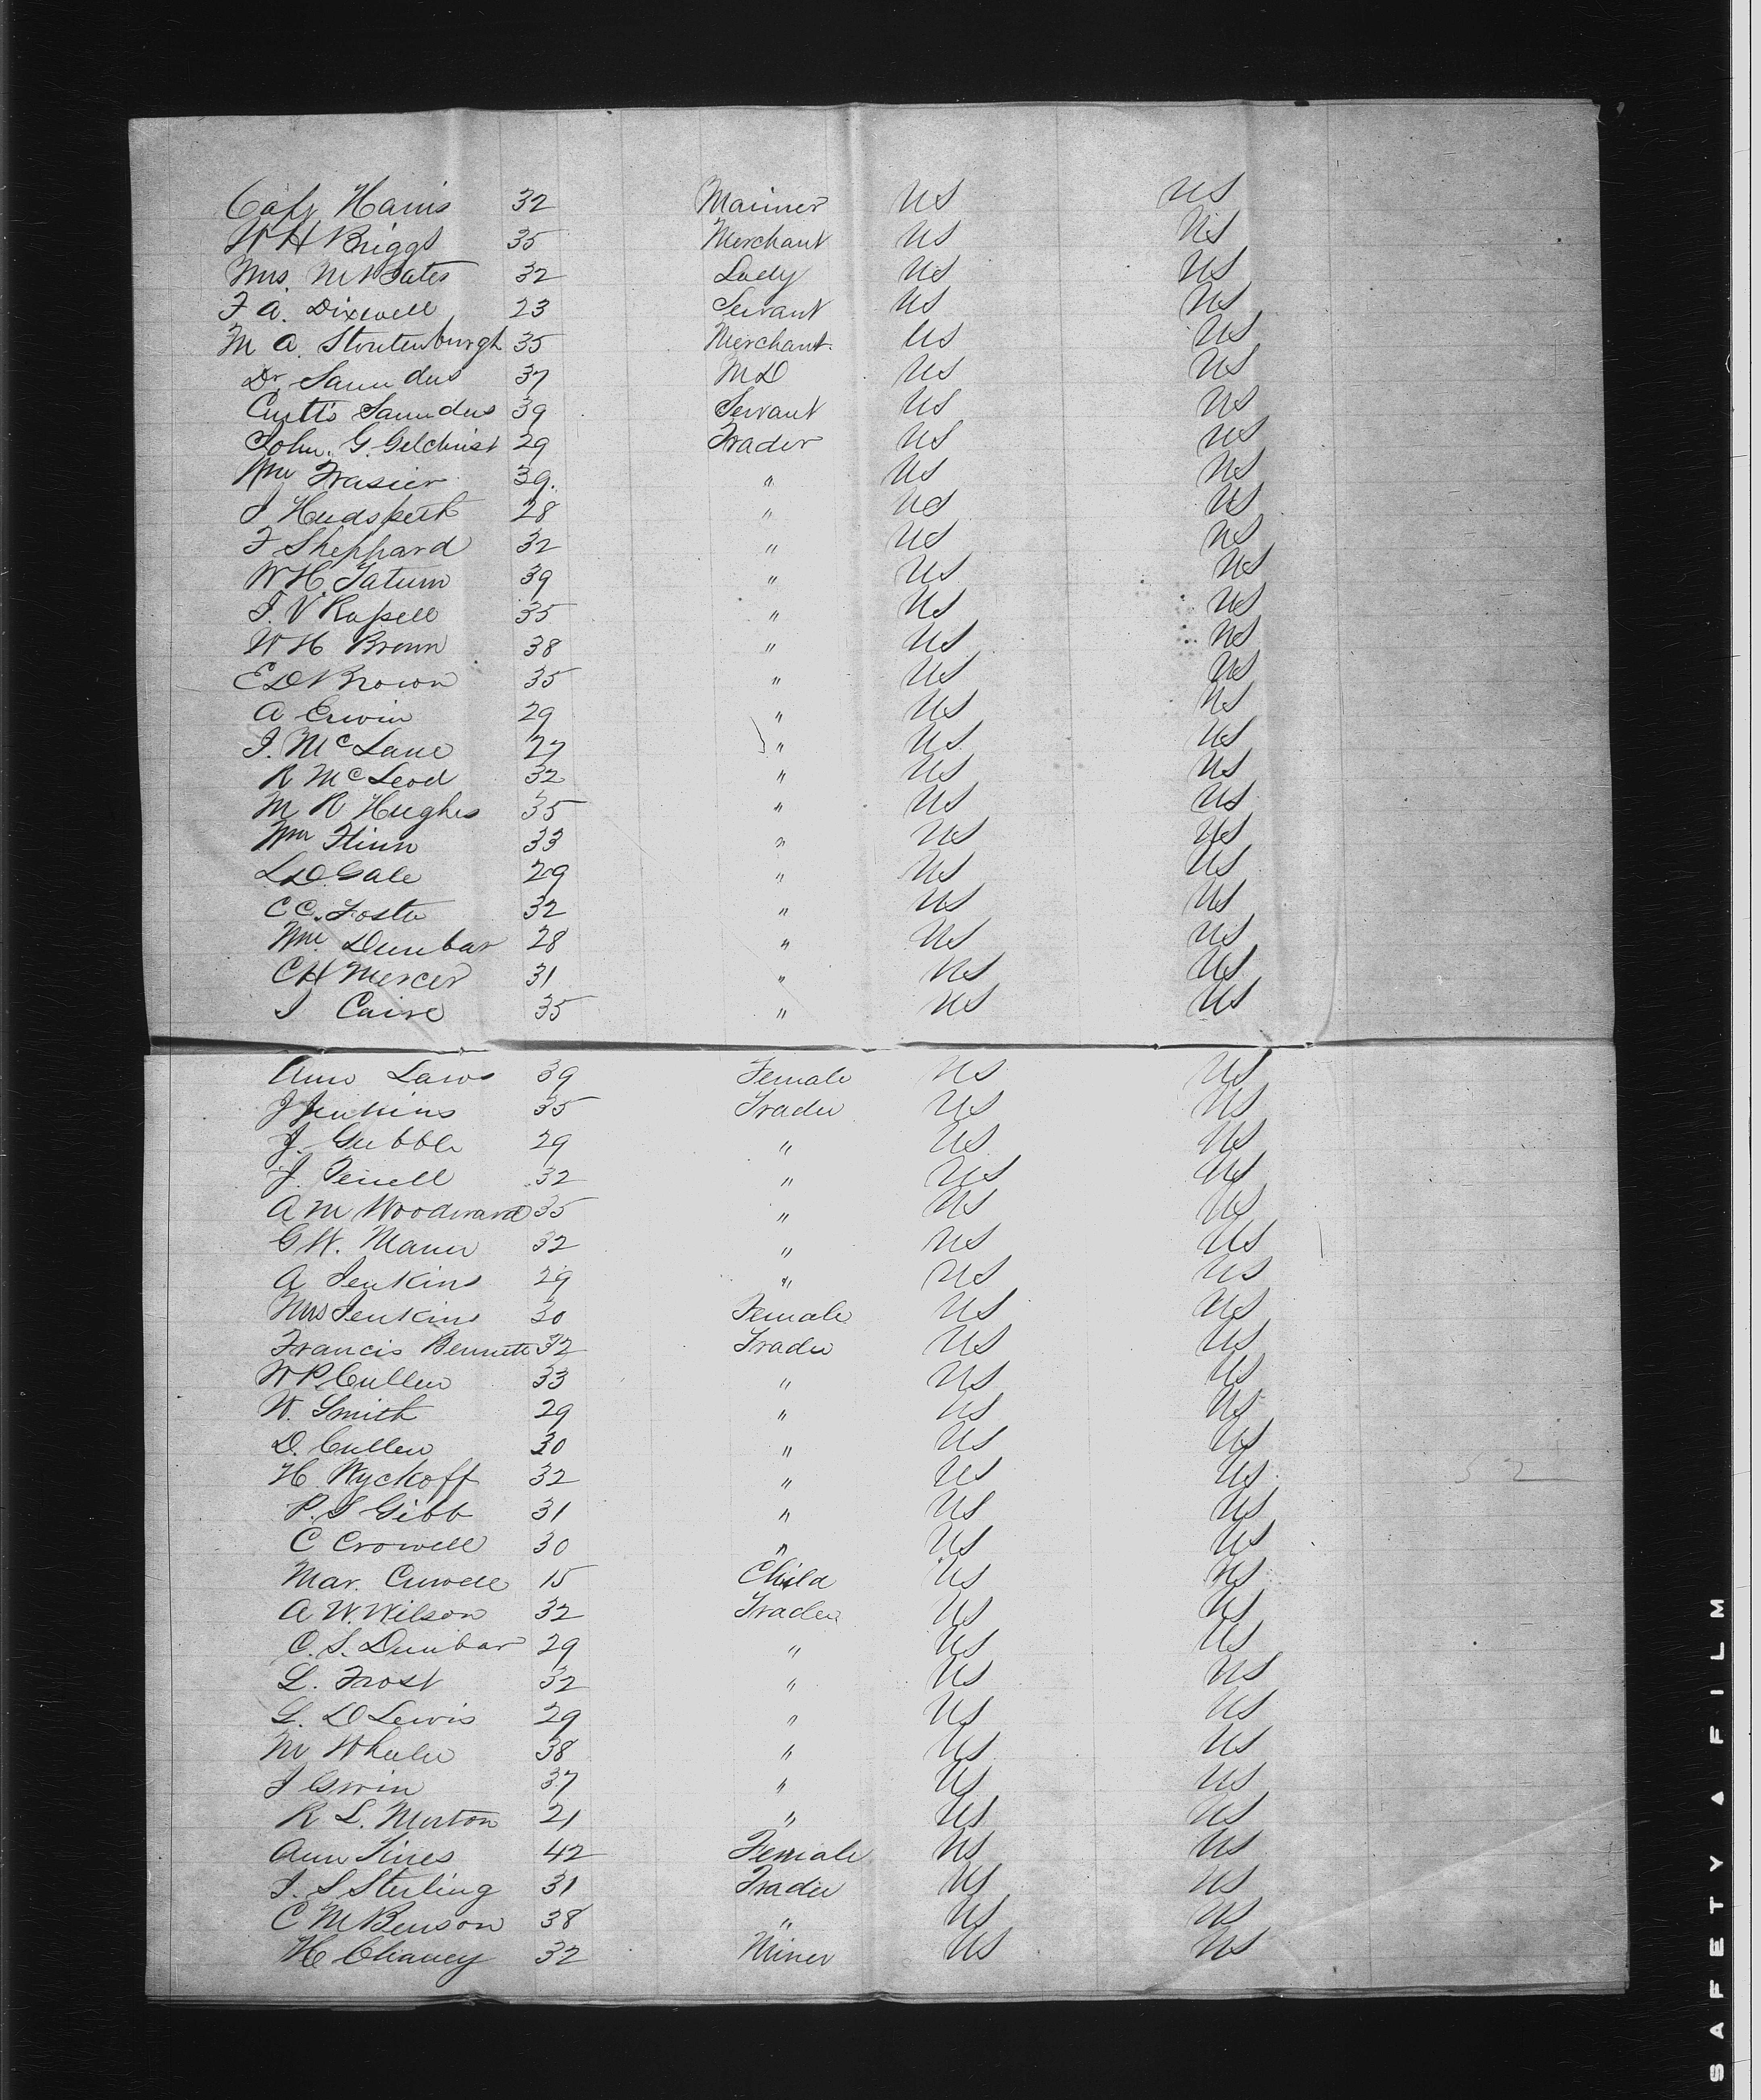 Capt Harris 32 Mariner US US
W H Briggs 35 Merchant US US
Mrs. M Yates 32 Lady US US
F A. Dixwell 23 Servant US US
M A. Stoutenburgh 35 Merchant. US US
Dr. Saunders 37 MD US US
Curtis Saunders 39 Servant US US
John. G. Gilchrist 29 Trader US US
Wm Frasier 39. " US US
J Hudspeth 28 " US US
F Sheppard 32 " US US
W H. Tatum 39 " US US
J. V Russell 35 " US US
W H Brown 38 " US US
E D Brown 35 " US US
A Erwin 29 " US US
J. McLane 27 " US US
R McLeod 32 " US US
M R Hughes 35 " US US
Wm Flinn 33 " US US
L D Gale 29 " US US
C C. Foster 32 " US US
Wm Dunbar 28 " US US
C H Mercer 31 " US US
J Caire 35 " US US
Ann Laws 39 Female US US
J Jenkins 35 Trader US US
J. Gubble 29 " US US
J. 32 " US US
A M Woodward 35 " US US
G W. Maner 32 " US US
A Jenkins 29 " US US
Mrs Jenkins 30 Female US US
Francis Bennett 32 Trader US US
W P Cullen 33 " US US
W. Smith 29 " US US
D. Cullen 30 " US US
H Wyckoff 32 " US US 52
P. S Gibb 31 " US US
C Crowell 30 " US US
Mar. Crowell 15 Child US US
A W. Wilson 32 Trader US US
C. S. Dunbar 29 " US US
L. Frost 32 " US US
G. D Lewis 29 " US US
M Wheeler 38 " US US
J Erwin 37 " US US
R L. Morton 21 " US US
Ann Lines 42 Female US US
J. S Sterling 31 Trader US US
C M Benson 38 " US US
H Chaney 32 Miner US US
SAFETY A FILM